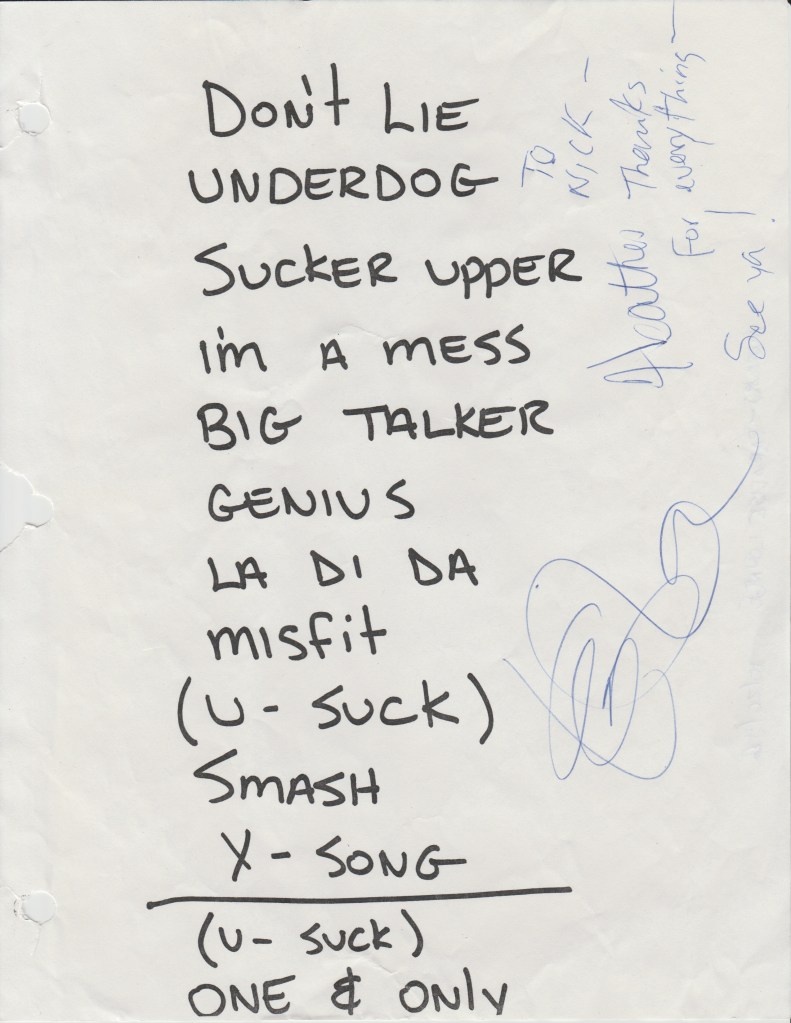 Don't Lie
UNDERDOG
SUCKER UPPER
I'm A MESS
BIG TALKER
GENIUS
LA DI DA
misfit
(U - SUCK)
SMASH
X - SONG
(U - SUCK)
ONE & ONLY
To
NICK —
Heather Thanks
For everything —
See ya!